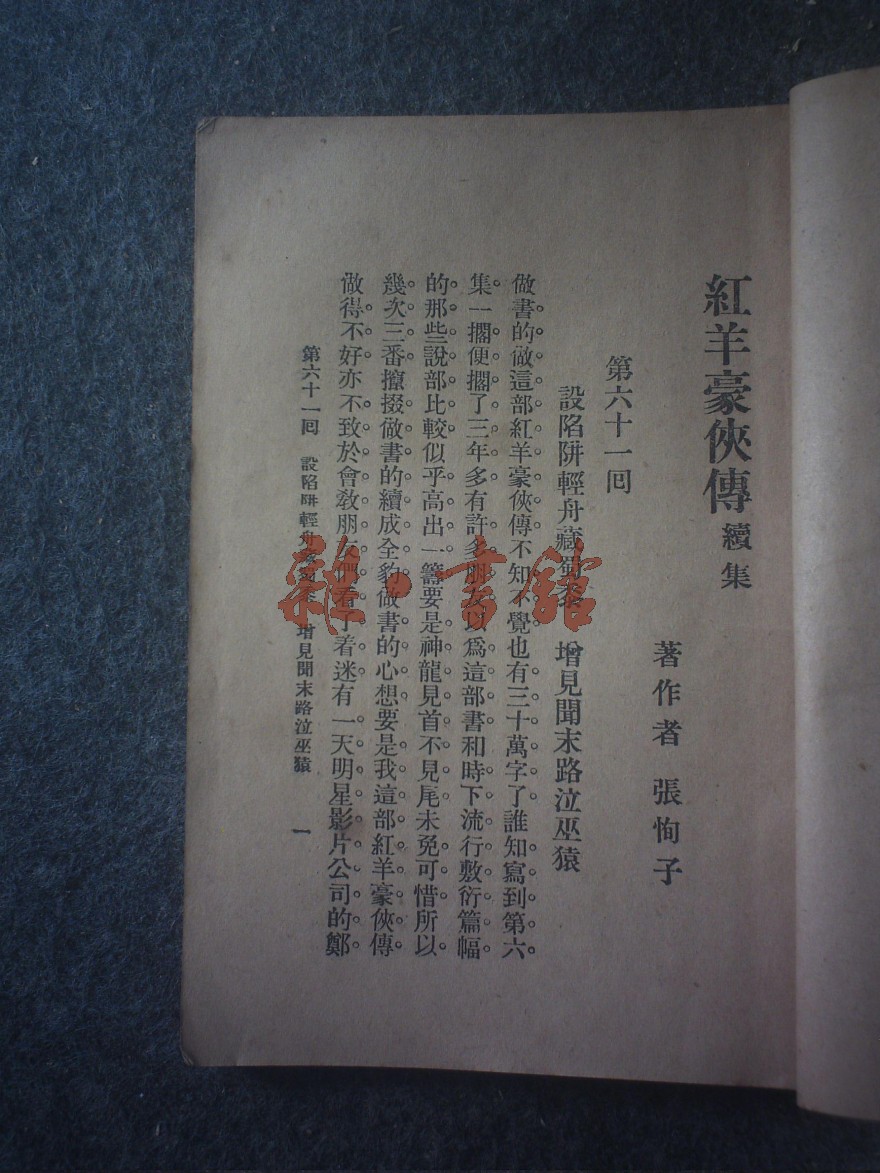 紅羊豪俠傳續集
著作者 張恂子
第六十一回
設陷阱輕舟藏 增見聞末路泣巫猿
做書的做這部紅羊豪俠傳不知不覺也有三十萬字了誰知寫到第六
集一擱便擱了三年多有許多朋友以爲這部書和時下流行敷衍篇幅
的那些說部比較似乎高出一籌要是神龍見首不見尾未免可惜所以
幾次三番攛掇做書的續成全豹做書的心想要是我這部紅羊豪俠傳
做得不好亦不致於會敎朋友們看了着迷有一天明星影片公司的鄭
第六十一回 設陷阱輕舟 增見聞末路泣巫猿 一
雜·書館